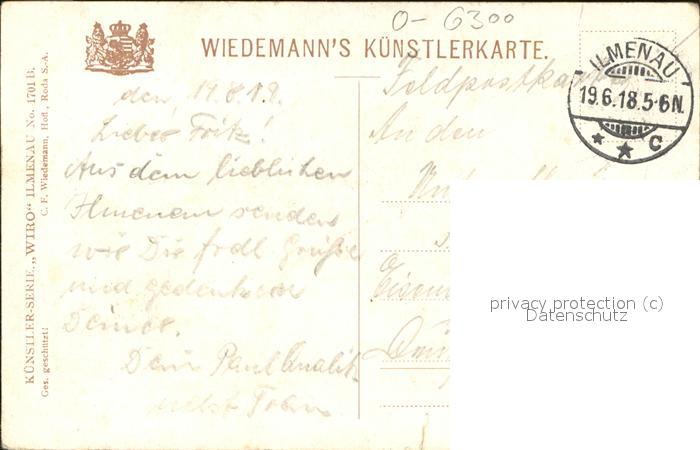 O- 6300
WIEDEMANN'S KÜNSTLERKARTE.
ILMENAU
19.6.18.5-6N.
* * C
Feldpostkarte
An den
den, 19.6.18.
Lieber Fritz!
Aus dem lieblichen
Ilmenau senden
wir Dir frdl. Grüße
und gedenken
Deiner.
Dein Paul
nebst Frau
KÜNSTLER-SERIE „WIRO“ ILMENAU No. 1701 B.
Ges. geschützt! C. F. Wiedemann, Hofl., Roda S.-A.
privacy protection (c)
Datenschutz